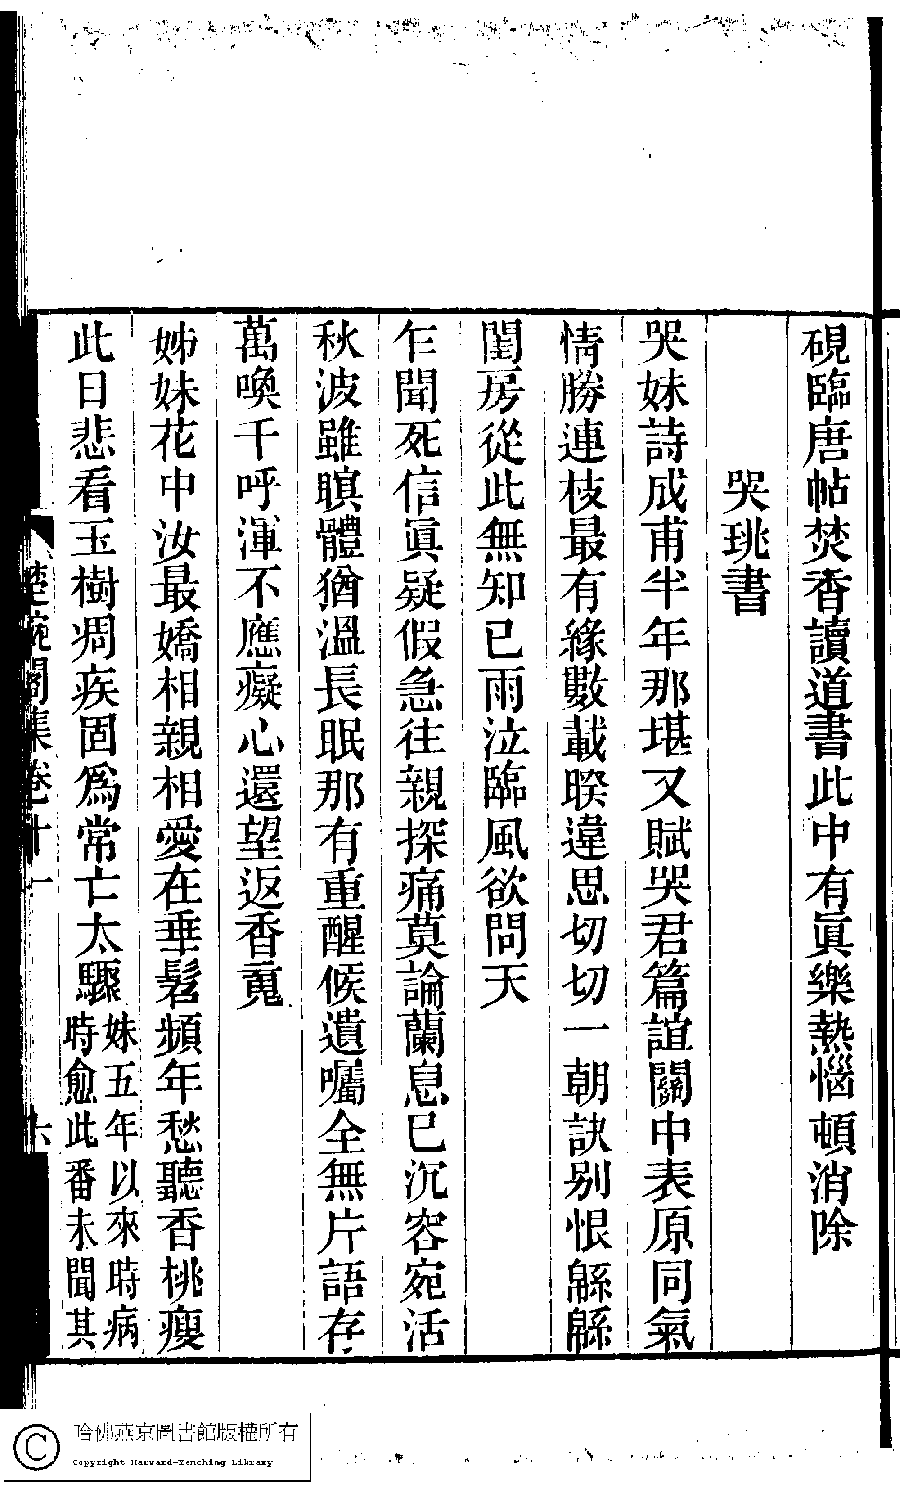 硯臨唐帖焚香讀道書此中有眞樂熱惱頓消除
哭珧書
哭妹詩成甫半年那堪又賦哭君篇誼關中表原同氣
情勝連枝最有緣數載暌違思切切一朝訣别恨緜緜
閨房從此無知已雨泣臨風欲問天
乍聞死信眞疑假急往親探痛莫論蘭息已沉容宛活
秋波雖瞑體猶溫長眠那有重醒候遺囑全無片語存
萬喚千呼渾不應癡心還望返香䰟
姊妹花中汝最嬌相親相愛在垂髫頻年愁聽香桃瘦
此日悲看玉樹凋疾固爲常亡太驟妹五年以來時病
時愈此番未聞其
楚畹閣集卷十一
六
哈佛燕京圖書館版權所有
Copyright Harvard-Yenching Library